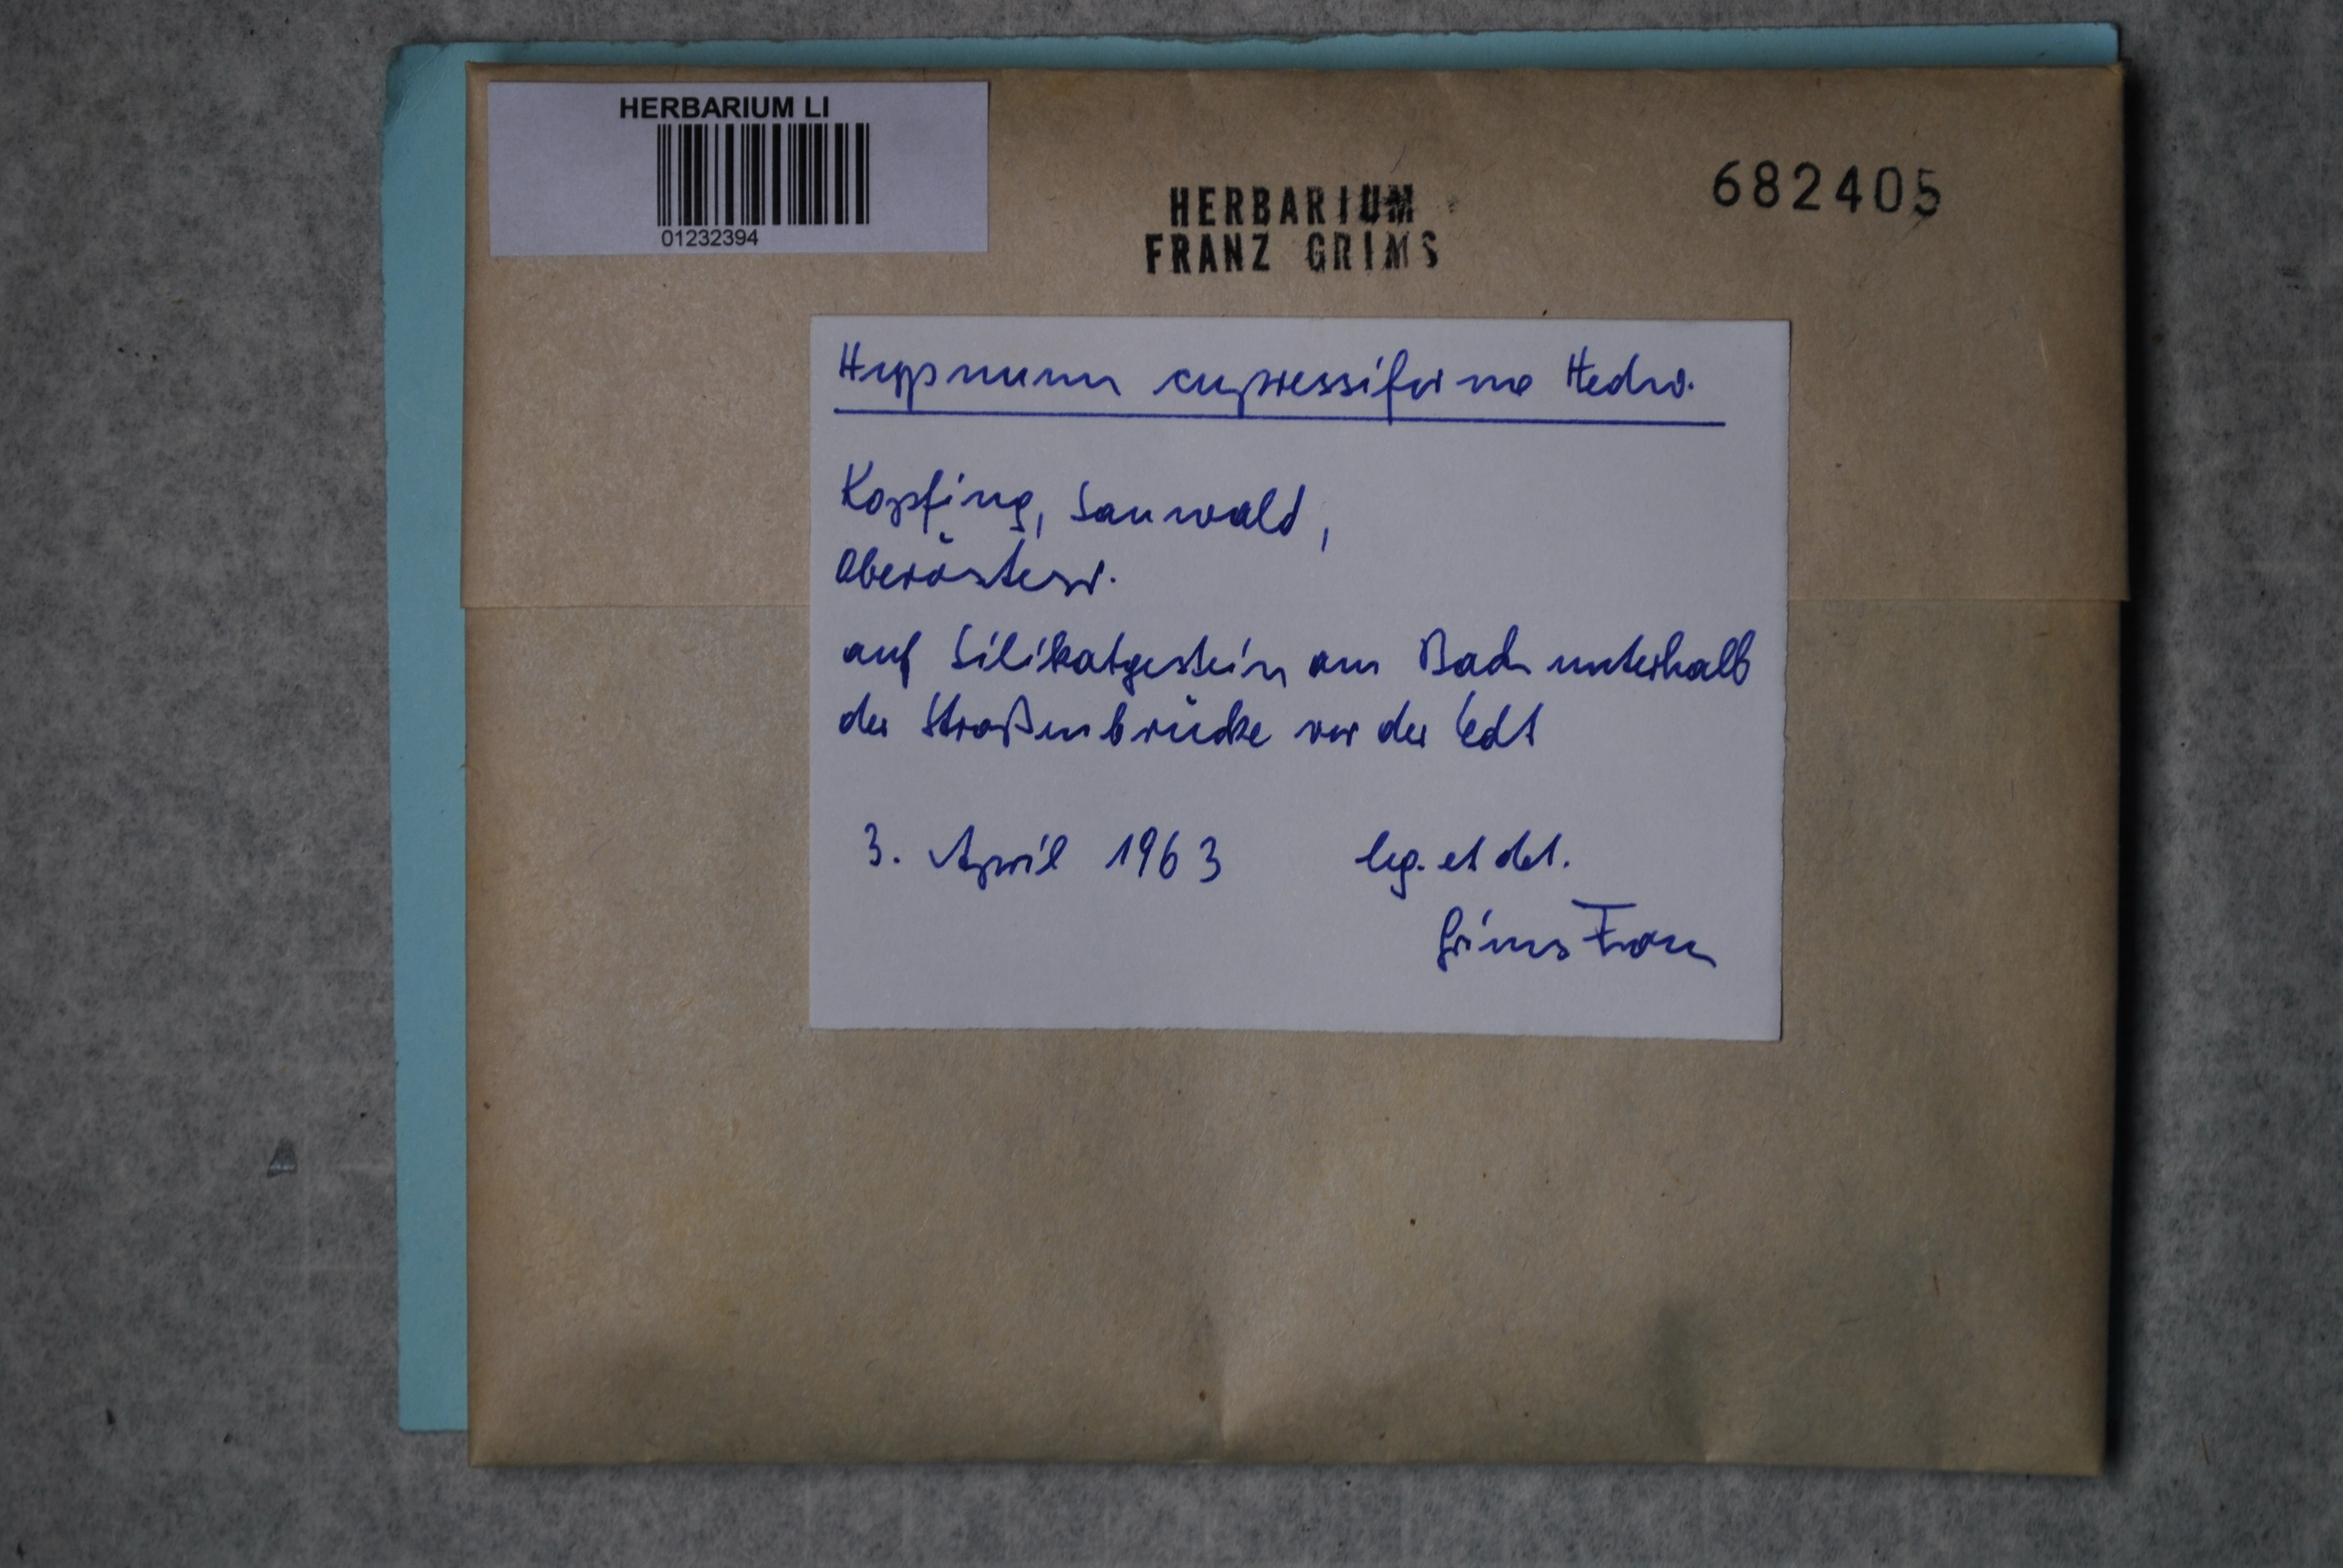 HERBARIUM LI
01232394
HERBARIUM
FRANZ GRIMS
682405
Hypnum cupressiforme Hedw.
Kopfing, Sauwald,
Oberösterr.
auf Silikatgestein am Bach unterhalb
der Straßenbrücke vor der Edt
3. April 1963 leg. et det.
Grims Franz